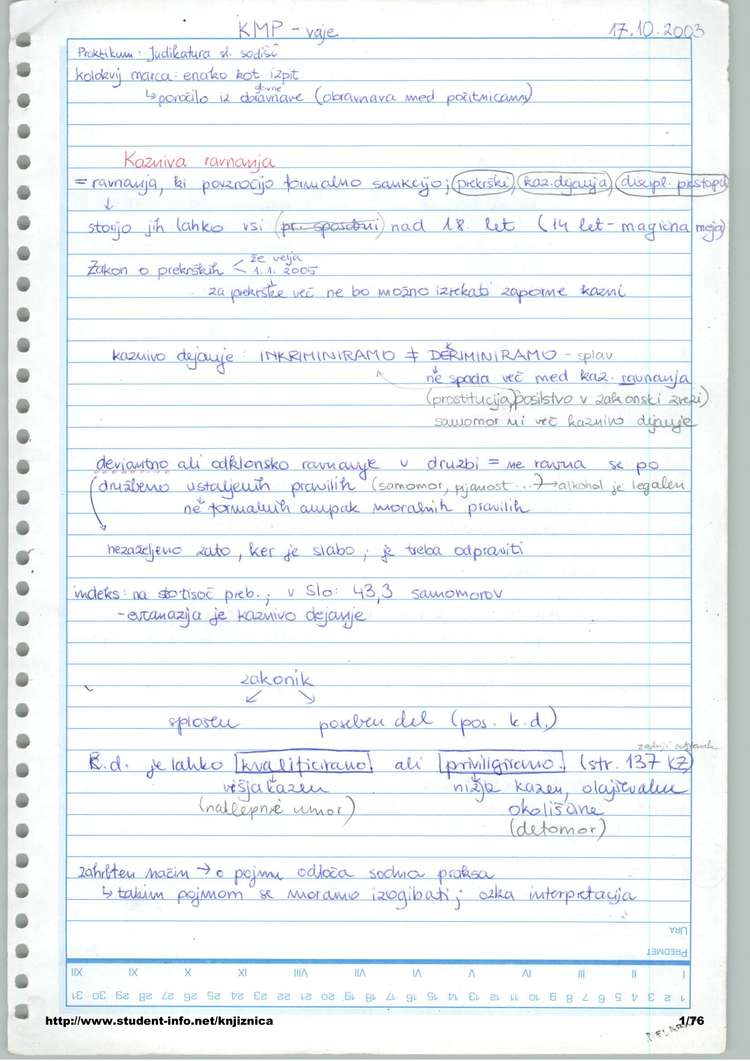 KMP - vaje 17.10.2003
Praktikum: Judikatura sl. sodišč
kolokvij marca: enako kot izpit
glavne
↳ poročilo iz obravnave (obravnava med počitnicami)
Kazniva ravnanja
= ravnanja, ki povzročijo formalno sankcijo; (prekrški), (kaz. dejanja), (discipl. prestopki)
↓
storijo jih lahko vsi (pr. sposobni) nad 18. let (14 let - magična meja)
že velja
Zakon o prekrških < 1.1.2005
za prekrške več ne bo možno izrekati zaporne kazni
kaznivo dejanje: INKRIMINIRAMO ≠ DEKRIMINIRAMO - splav
ne spada več med kaz. ravnanja
(prostitucija, posilstvo v zakonski zvezi)
samomor ni več kaznivo dejanje
deviantno ali odklonsko ravnanje v družbi = ne ravna se po
družbeno ustaljenih pravilih (samomor, pijanost...) → alkohol je legalen
ne formalnih ampak moralnih pravilih
nezaželjeno zato, ker je slabo; je treba odpraviti
indeks: na stotisoč preb.; v Slo: 43,3 samomorov
- evtanazija je kaznivo dejanje
zakonik
↙ ↘
splošen poseben del (pos. k.d.)
K.d. je lahko kvalificirano ali priviligirano. (str. 137 KZ)
višja kazen nižja kazen, olajševalne
(naklepni umor) okoliščine
(detomor)
zahrbten način → o pojmu odloča sodna praksa
↳ takim pojmom se moramo izogibati; ozka interpretacija
URA
PREDMET
I II III IV V VI VII VIII IX X XI XII
1 2 3 4 5 6 7 8 9 10 11 12 13 14 15 16 17 18 19 20 21 22 23 24 25 26 27 28 29 30 31
http://www.student-info.net/knjiznica 1/76